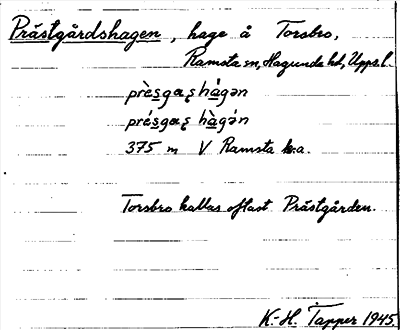 Prästgårdshagen, hage å Torsbro,
Ramsta sn, Hagunda hd, Upps. l.
prèsgɑʂhágən
présgɑʂhàgə́n
375 m V Ramsta k:a.
Torsbro kallas oftast Prästgården.
K.-H. Tapper 1945.